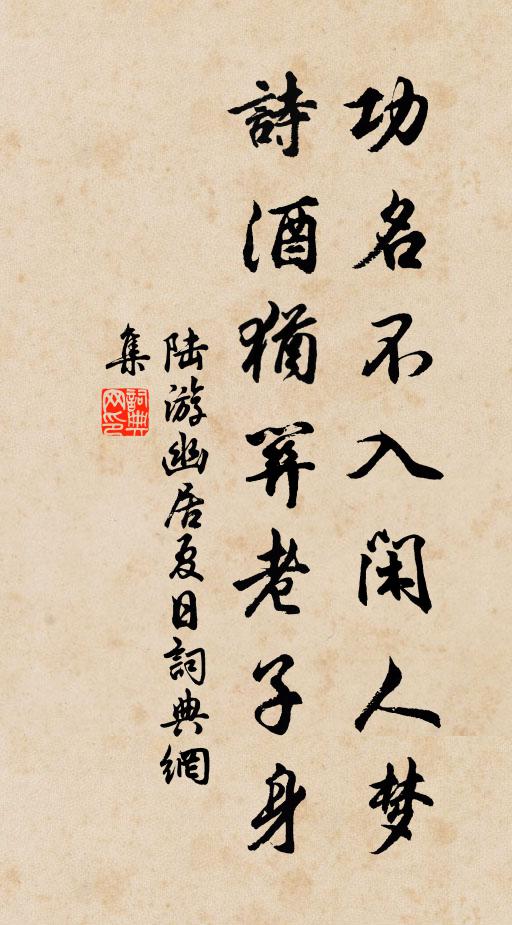 功名不入闲人梦
詩酒猶關老子身
陆游幽居夏日詞典網
集
詞典
网印